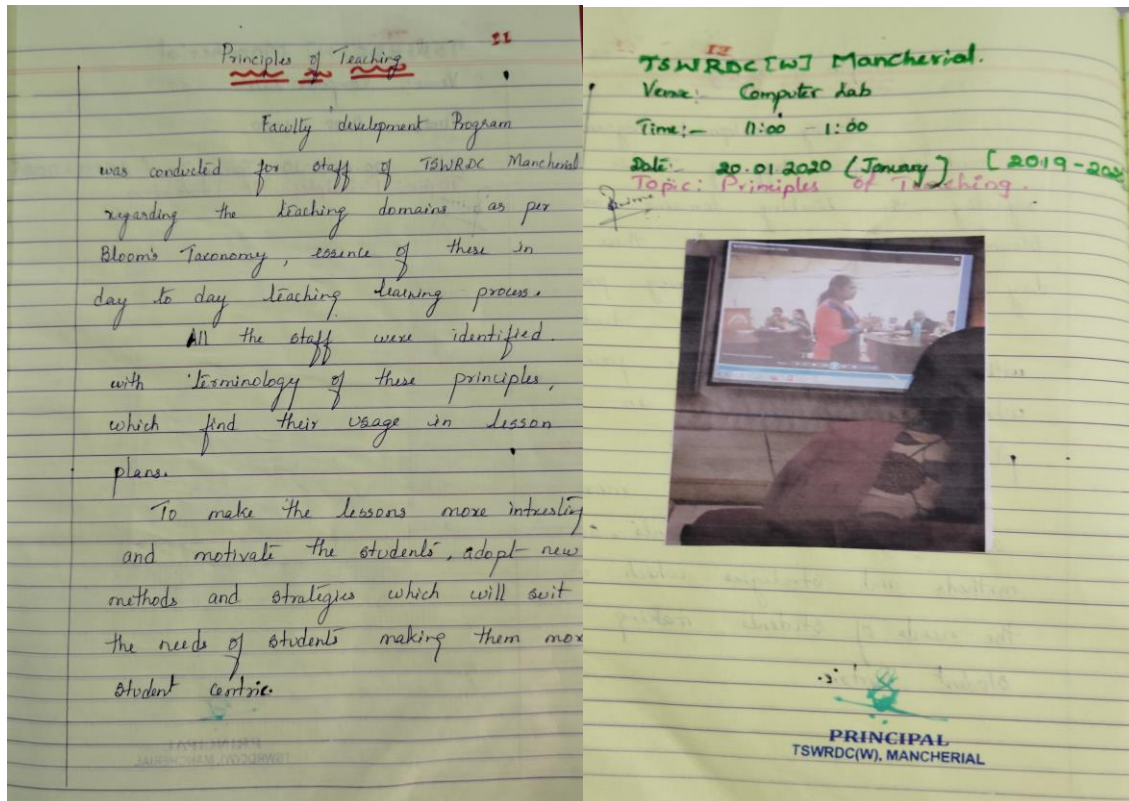 II
Principles of Teaching
Faculty development Program
was conducted for staff of TSWRDC Mancherial
regarding the teaching domains as per
Bloom's Taxonomy, essence of these in
day to day teaching learning process.
All the staff were identified.
with terminology of these principles,
which find their usage in lesson
plans.
To make the lessons more intresting
and motivate the students, adopt new
methods and strategies which will suit
the needs of students making them more
student centric.
TSWRDC [W] Mancherial.
Venue: Computer Lab
Time:- 11:00 - 1:00
Date:- 20.01.2020 (January) [2019-202
Topic: Principles of Teaching.
PRINCIPAL
TSWRDC(W), MANCHERIAL